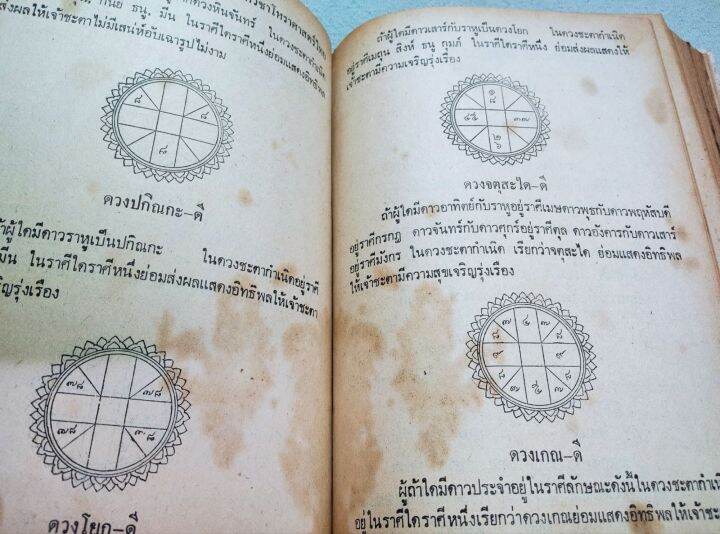 กันย์ ธนู, มีน ในราศีใดราศีหนึ่งย่อมแสดงอิทธิพล
ส่งผลให้เจ้าชะตาไม่มีเสน่ห์อับเฉารูปไม่งาม
๘
๘
๘
ดวงปกิณกะ-ดี
ถ้าผู้ใดมีดาวราหูเป็นปกิณกะ ในดวงชะตากำเนิดอยู่ราศี
มีน ในราศีใดราศีหนึ่งย่อมส่งผลแสดงอิทธิพลให้เจ้าชะตา
เจริญรุ่งเรือง
๗๘
๗๘
๗๘
๗๘
ดวงโยก-ดี
ถ้าผู้ใดมีดาวเสาร์กับราหูเป็นดวงโยก ในดวงชะตากำเนิด
อยู่ราศีเมถุน สิงห์ ธนู กุมภ์ ในราศีใดราศีหนึ่ง ย่อมส่งผลแสดงให้
เจ้าชะตามีความเจริญรุ่งเรือง
๑
๘
๔๕
๓๗
๒
๖
ดวงจตุสะได-ดี
ถ้าผู้ใดมีดาวอาทิตย์กับราหูอยู่ราศีเมษดาวพุธกับดาวพฤหัสบดี
อยู่ราศีกรกฎ ดาวจันทร์กับดาวศุกร์อยู่ราศีตุล ดาวอังคารกับดาวเสาร์
อยู่ราศีมังกร ในดวงชะตากำเนิด เรียกว่าจตุสะได ย่อมแสดงอิทธิพล
ให้เจ้าชะตามีความสุขเจริญรุ่งเรือง
ดวงเกณ-ดี
ผู้ถ้าใดมีดาวประจำอยู่ในราศีลักษณะดังนี้ในดวงชะตากำเนิ
อยู่ในราศีใดราศีหนึ่งเรียกว่าดวงเกณย่อมแสดงอิทธิพลให้เจ้าชะ